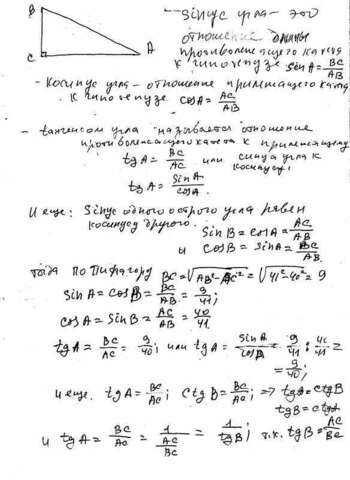 B
C
A
- Sinус угла - это
отношение длины
противолежащего катета
к гипотенузе sinA = BC/AB
- Косинус угла - отношение прилежащего катета
к гипотенузе cosA = AC/AB
- тангенсом угла называется отношение
противолежащего катета к прилежащему
tgA = BC/AC или синуса угла к
косинусу:
tgA = SinA/cosA.
И еще: Sinус одного острого угла равен
косинусу другого. SinB = cosA = AC/AB
и cosB = sinA = BC/AB
тогда по Пифагору BC = √AB²-AC² = √41²-40² = 9
sinA = cosB = BC/AB = 9/41;
cosA = SinB = AC/AB = 40/41
tgA = BC/AC = 9/40; или tgA = sinA/cosA = 9/41 : 40/41 =
= 9/40;
И еще. tgA = BC/AC; ctgB = BC/AC; => tgA = ctgB
tgB = ctgA
и tgA = BC/AC = 1/(AC/BC) = 1/tgB; т.к. tgB = AC/BC